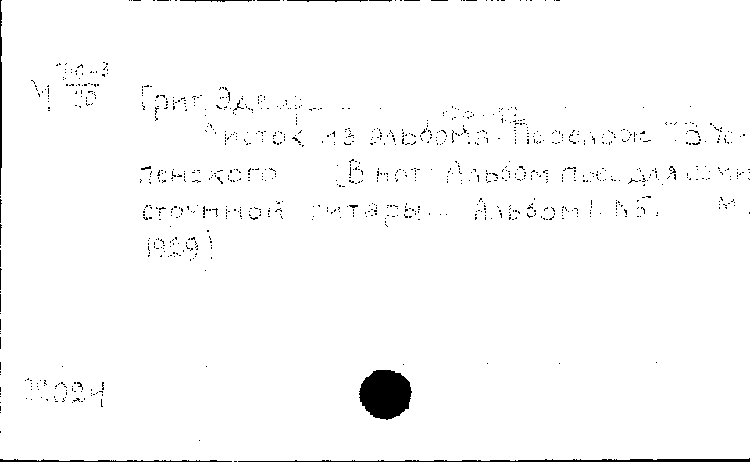 Григ, Эдвард
Листок из альбома. Перелож. В. Ус-
пенского (В нот. Альбом пьес для семи
струнной гитары. Альбом I. №5. М.,
1929)